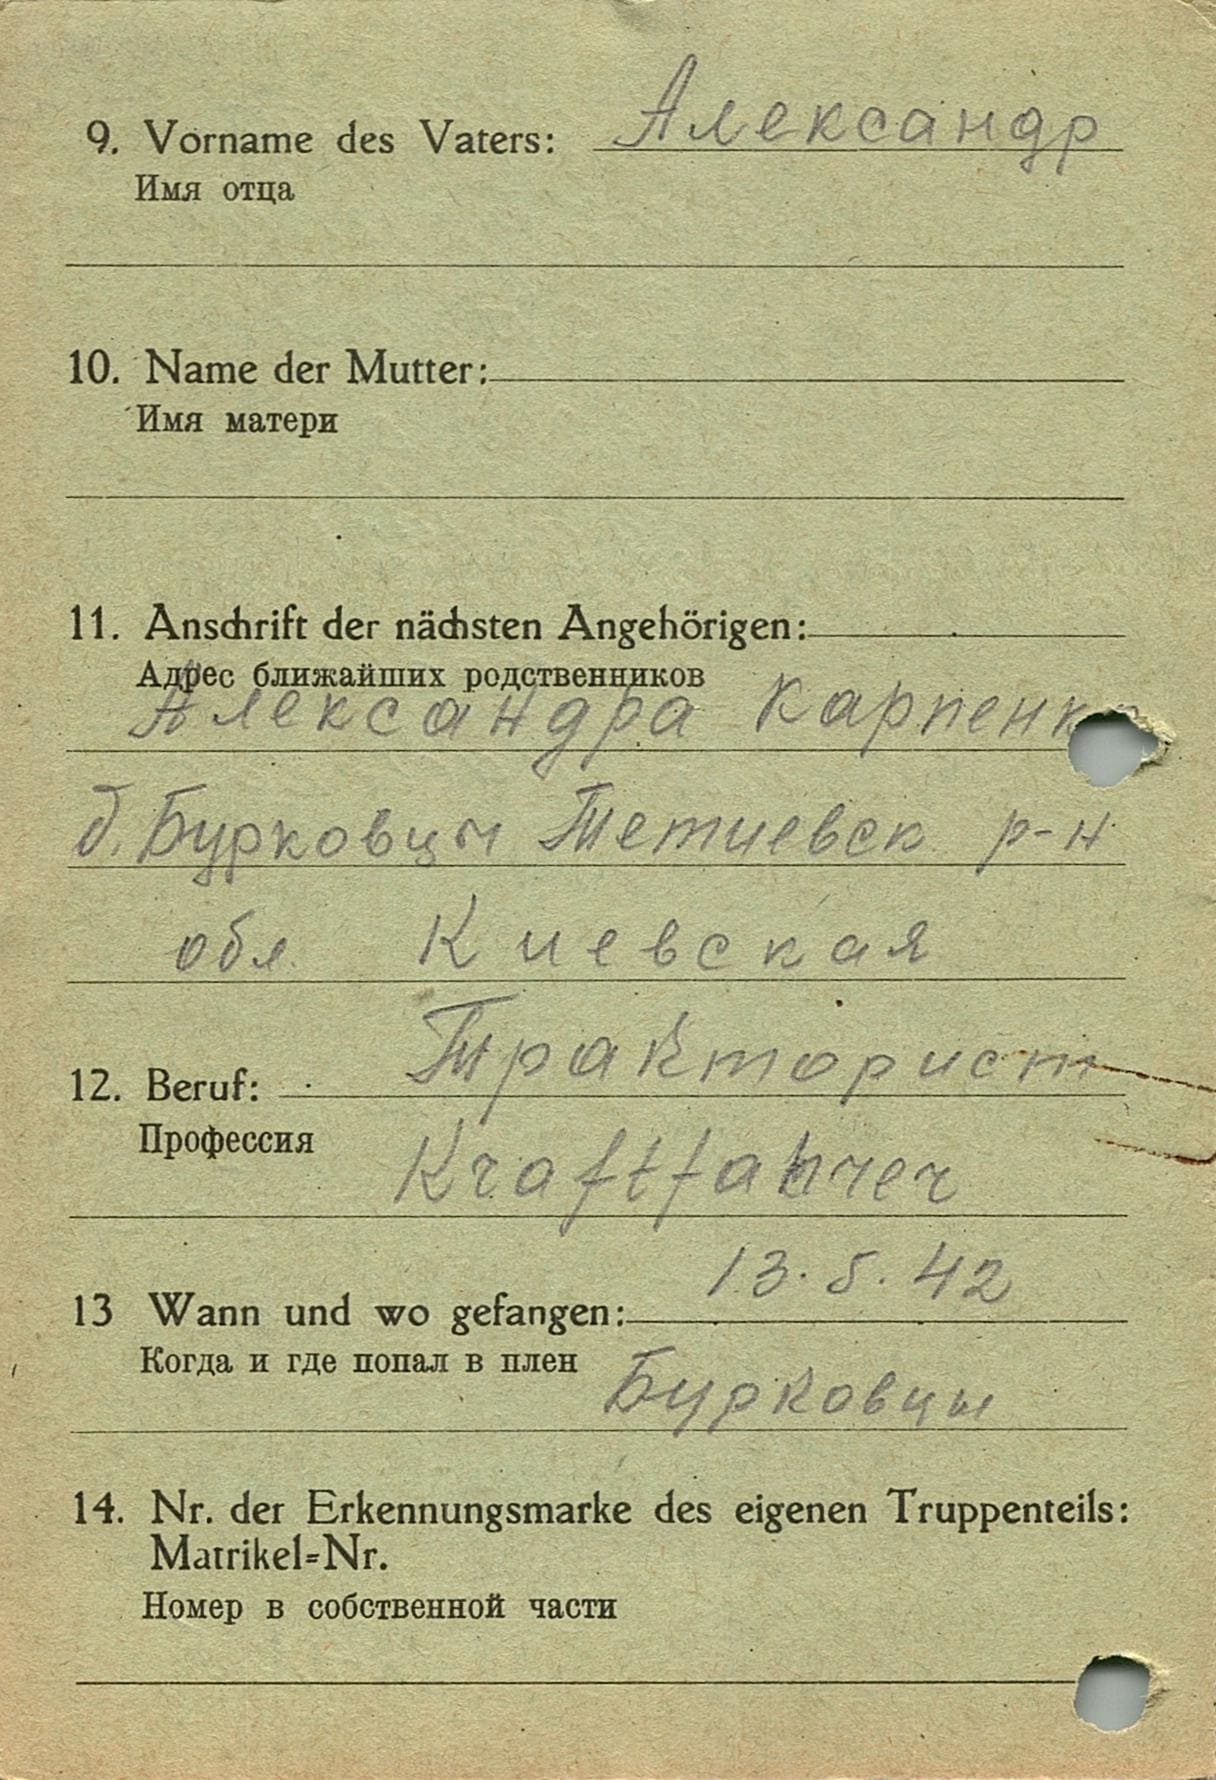 9. Vorname des Vaters: Александр
Имя отца
10. Name der Mutter:
Имя матери
11. Anschrift der nächsten Angehörigen:
Адрес ближайших родственников
Александра Карпенко
д. Бурковцы Тетиевск р-н
обл. Киевская
12. Beruf: Тракторист
Профессия
Kraftfahrer
13 Wann und wo gefangen: 13.5.42
Когда и где попал в плен
Бурковцы
14. Nr. der Erkennungsmarke des eigenen Truppenteils:
Matrikel=Nr.
Номер в собственной части